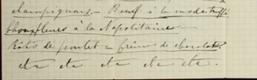 champignons — Bœuf à la mode truffé
Choufleurs à la Napolitaine
Rôtis de poulet — crème de chocolat
etc etc etc etc etc.